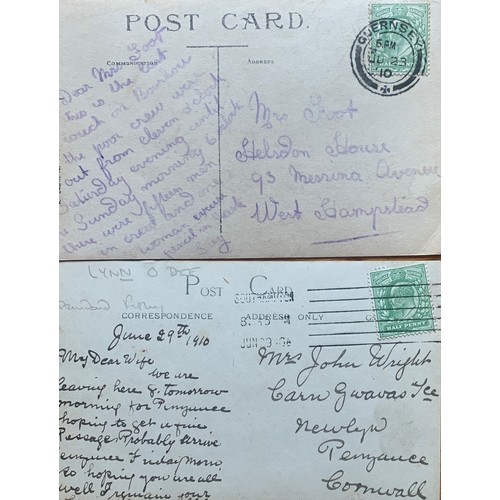 POST CARD.
Communication
Address
GUERNSEY
5 PM
JL 23
10
Dear Mrs Foot
This is the last
wreck on
the poor crew were
out from eleven o'clock
Saturday evening until
Sunday morning 6 o'clock
there were fifteen men
in crew and one
woman excuse
pencil in haste
Mrs Foot
Helsdon House
93 Messina Avenue
West Hampstead
LYNN O DEE
POST CARD
CORRESPONDENCE
ADDRESS ONLY
SOUTHAMPTON
JUN 29
HALF PENNY
June 29th 1910
My Dear Wife
we are
leaving here & tomorrow
morning for Penzance
hoping to get a fine
Passage. Probably arrive
Penzance Friday Morn
so hoping you are all
well I remain your
Mrs John Wright
Carn Gwavas Tce
Newlyn
Penzance
Cornwall